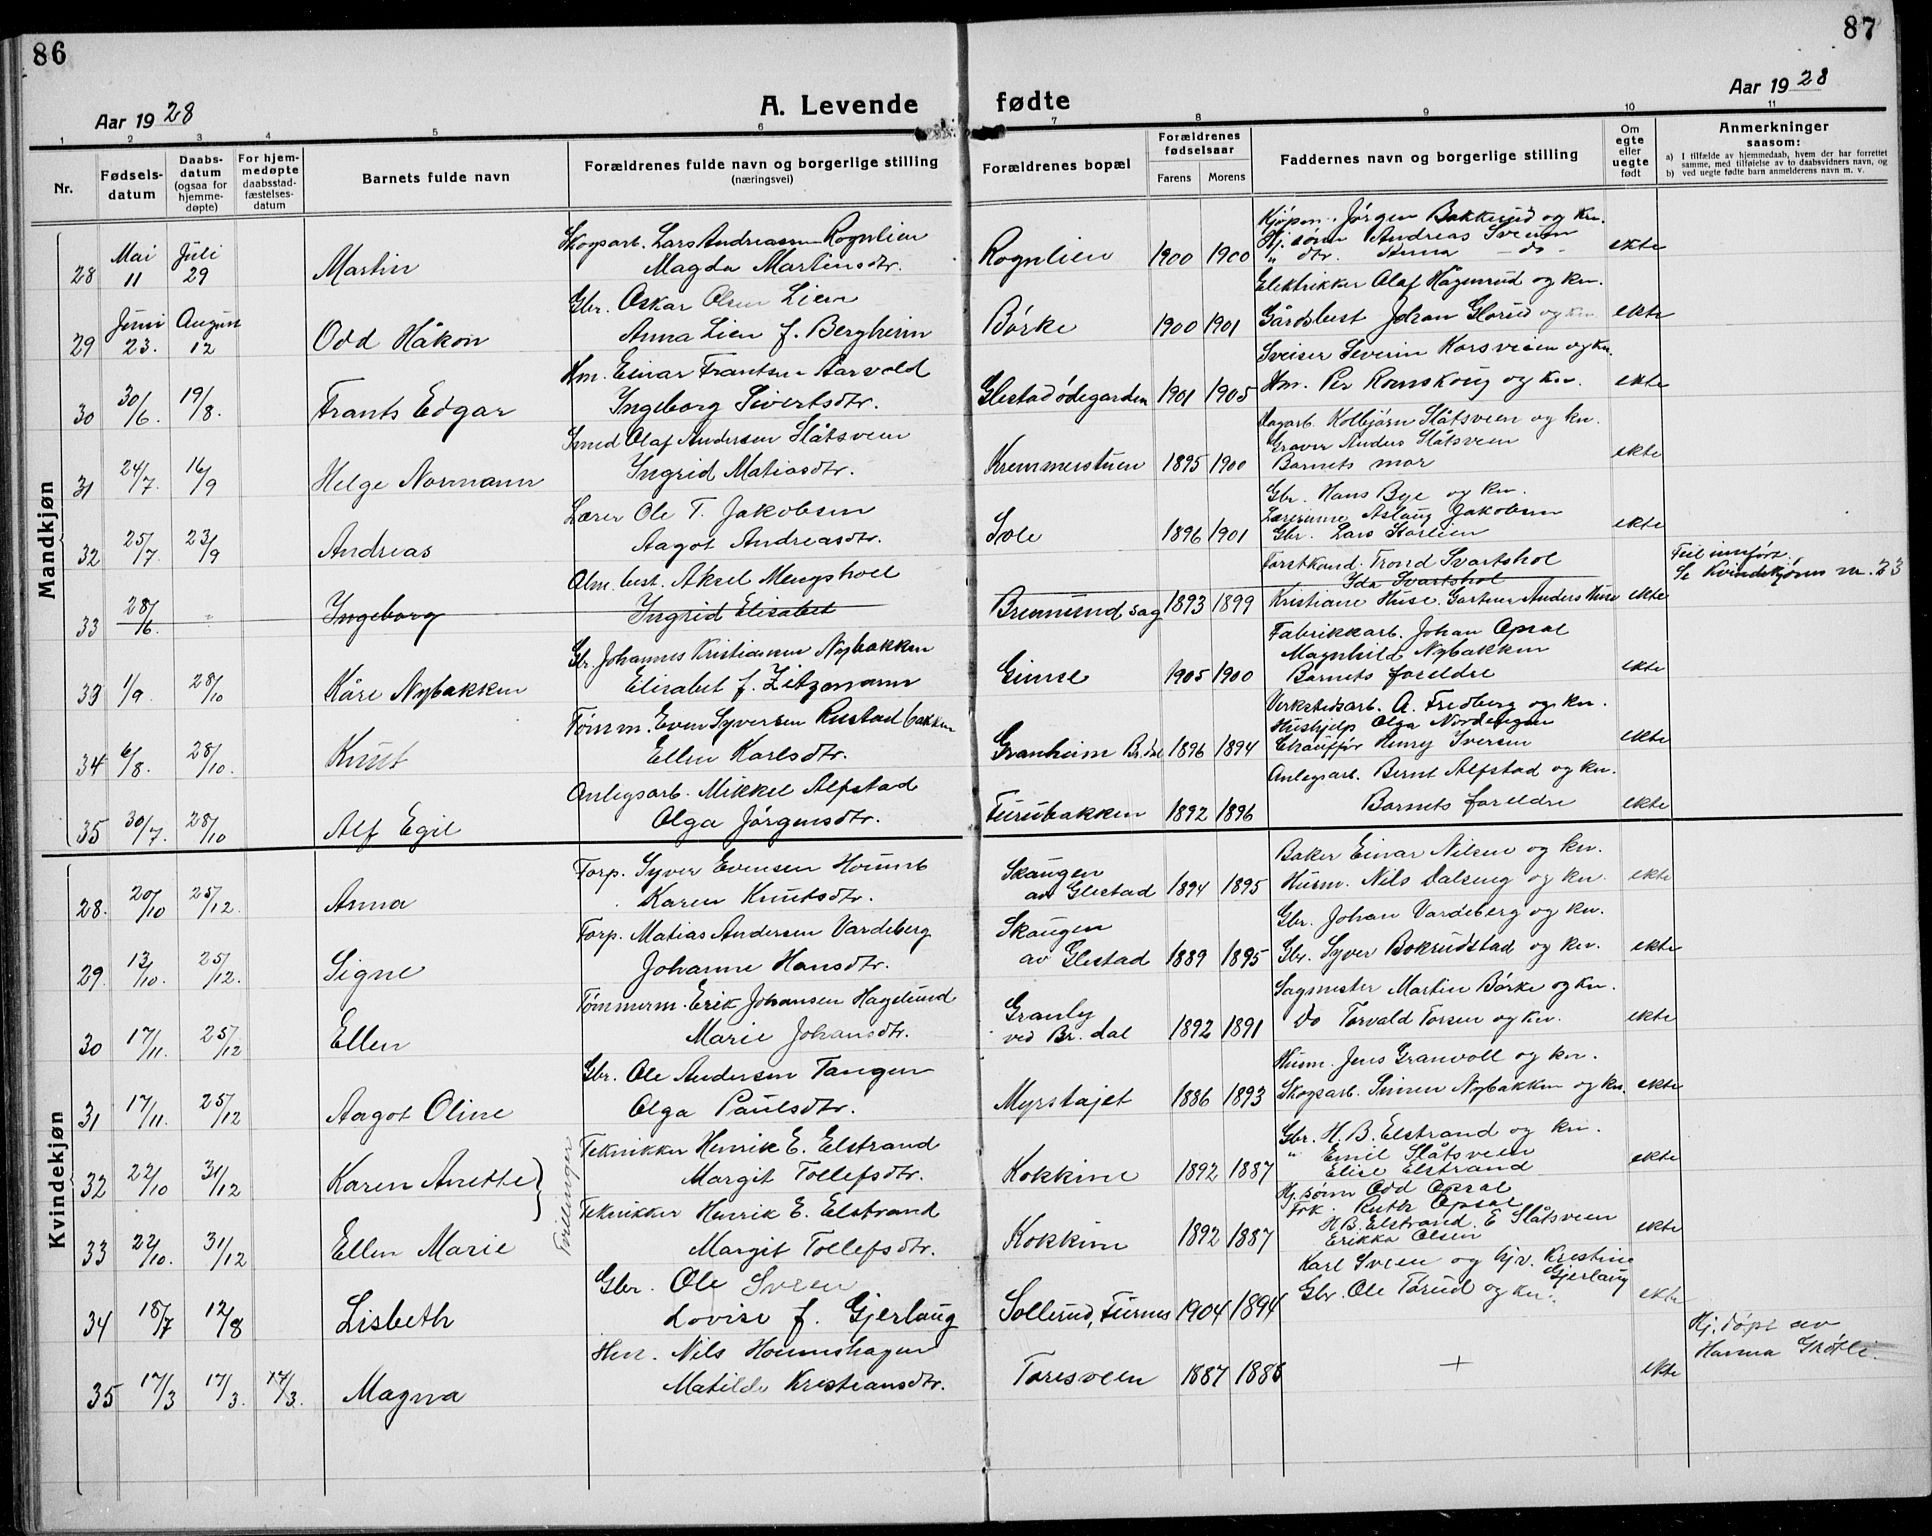 86
87
Aar 1928
A. Levende fødte
Aar 1928
1 2 3 4 5 6 7 8 9 10 11
Nr.
Fødsels-datum
Daabs-datum (ogsaa for hjemme-døpte)
For hjem-medøpte daabsstad-fæstelses-datum
Barnets fulde navn
Forældrenes fulde navn og borgerlige stilling (næringsvei)
Forældrenes bopæl
Forældrenes fødselsaar
Farens Morens
Faddernes navn og borgerlige stilling
Om egte eller uegte født
Anmerkninger saasom:
a) I tilfælde av hjemmedaab, hvem der har forrettet samme, med tilføielse av to daabsvidners navn, og
b) ved uegte fødte barn anmelderens navn m. v.
Mandkjøn
Skogsarb. Lars Andreassen Rognlien Kjøpm. Jørgen Bakkerud og kn.
28 Mai 11 Juli 29 Martin Magda Martinsdtr. Rognlien 1900 1900 Hj. sønn Andreas Sveum ekte
" dtr. Anna - do -
Gbr. Oskar Olsen Lien Elektrikker Olaf Hågenrud og kn.
29 Juni 23. August 12 Odd Håkon Anna Lien f. Bergheim Børke 1900 1901 Gårdsbest Johan Glorud og kn ekte
Hm. Einar Frantsen Aarvold Sveiser Severin Korsveien og kn.
30 30/6. 19/8. Frants Edgar Ingeborg Sivertsdtr. Glestadødegarden 1901 1905 Hm. Per Romskoug og kn. ekte
Smed Olaf Andersen Slåtsveen Dagarb. Kolbjørn Slåtsveen og kn.
Graver Anders Slåtsveen
31 24/7. 16/9 Helge Normann Ingrid Matiasdtr. Kremmerstuen 1895 1900 Barnets mor ekte
Lærer Ole T. Jakobsen Gbr. Hans Bye og kn.
Lærerinne Aslaug Jakobsen
32 25/7. 23/9 Andreas Aagot Andreasdtr. Sole 1896 1901 Gbr. Lars Storlien ekte
Olm. best. Aksel Mengshoel Forstkand. Trond Svartshol Feil innført.
Ida Svartshol Se Kvindekjønn nr. 23
33 28/6. " Ingeborg Ingrid Elisabet Bremund sag 1893 1899 Kristiane Huse. Gartner Anders Huse ekte
Gbr. Johannes Kristiansen Nybakken Fabrikkarb. Johan Opsal
Magnhild Nybakken
33 1/9. 28/10 Kåre Nybakken Elisabet f. Zitzmann Gimse 1905 1900 Barnets foreldre ekte
Tømm. Even Syversen Rustadbakken Verkstedsarb. A. Fredberg og kn.
Hushjelp Olga Nordengen
34 6/8. 28/10. Knut Ellen Karlsdtr. Granheim Br.dal 1896 1894 Chauffør Henry Iversen ekte
Anlegsarb. Mikkel Alfstad Anlegsarb. Bernt Alfstad og kn.
35 30/7. 28/10 Alf Egil Olga Jørgensdtr. Furubakken 1892 1896 Barnets foreldre ekte
Kvindekjøn
Forp. Syver Evensen Houmb Skaugen Baker Einar Nilsen og kn.
28. 20/10 25/12. Anna Karen Knutsdtr. av Glestad 1894 1895 Husm. Nils Dalseng og kn. ekte
Forp. Matias Andersen Vardeberg Skaugen Gbr. Johan Vardeberg og kn.
29. 13/10. 25/12. Signe Johanne Hansdtr. av Glestad 1889 1895 Gbr. Syver Bokrudstad og kn. ekte
Tømmerm. Erik Johansen Hagelund Granly Sagmester Martin Børke og kn.
30 17/11. 25/12 Ellen Marie Johansdtr. ved Br. dal 1892 1891 Do Torvald Torsen og kn. ekte
Gbr. Ole Andersen Tangen Husm. Jens Granvoll og kn.
31 17/11. 25/12 Aagot Oline Olga Paulsdtr. Myrstajet 1886 1893 Skogsarb. Simen Nybakken og kn. ekte
Teknikker Henrik E. Elstrand Gbr. H. B. Elstrand og kn.
" Emil Slåtsveen
32 22/10 31/12 Karen Anette Tvillinger Margit Tollefsdtr. Kokkine 1892 1887 Elise Elstrand ekte
Teknikker Henrik E. Elstrand Hj. sønn Odd Opsal
Frk. Ruth Opsal
H. B. Elstrand. E Slåtsveen
33 22/10. 31/12 Ellen Marie Margit Tollefsdtr. Kokkine 1892 1887 Erikka Olsen ekte
Gbr. Ole Sveen Karl Sveen og hjv. Kristine Gjerlaug
34 18/7 12/8 Lisbeth Lovise f. Gjerlaug Sollerud, Furnes 1904 1894 Gbr. Ole Torud og kn. ekte
Hm. Nils Houmshagen Hj. døpt av
Hanna Grøtli.
35 17/3 17/3. 17/3. Magna Matilde Kristiansdtr. Toresveen 1887 1886 + ekte